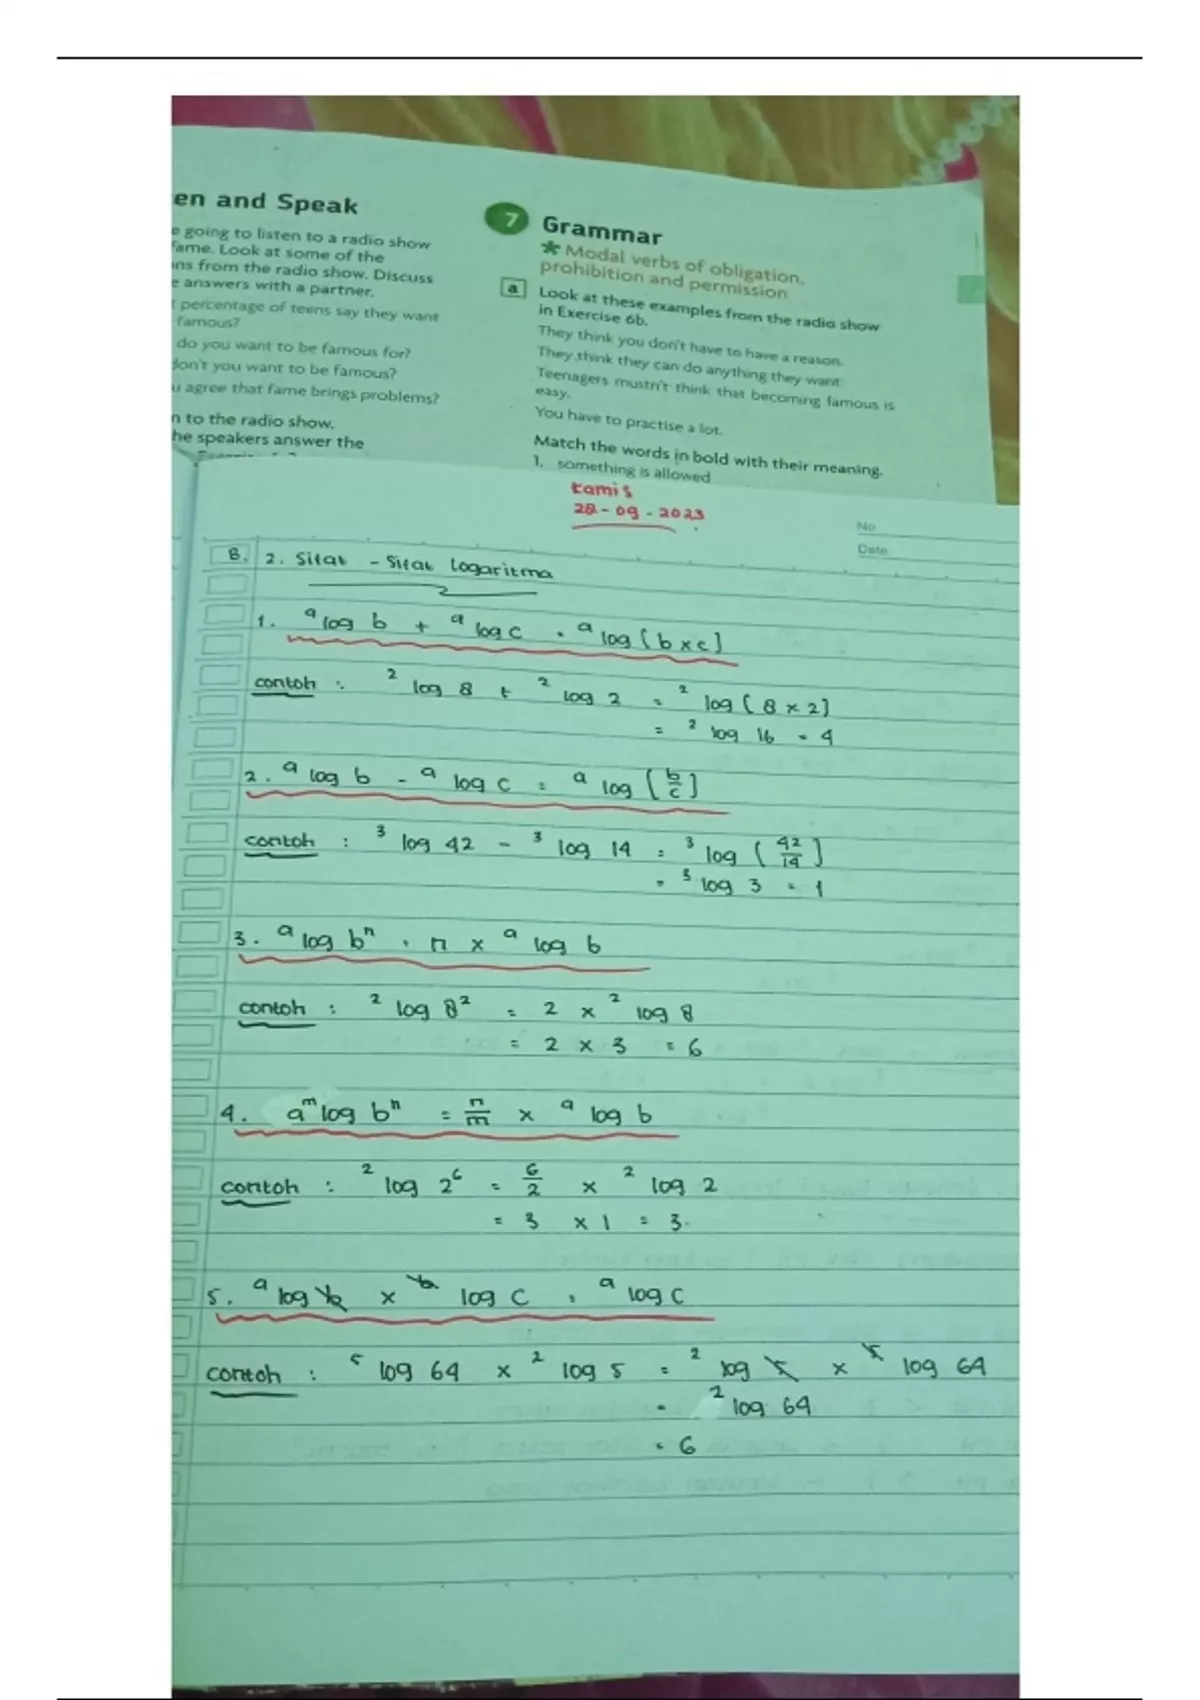 en and Speak
e going to listen to a radio show
fame. Look at some of the
ns from the radio show. Discuss
e answers with a partner.
t percentage of teens say they want
famous?
do you want to be famous for?
don't you want to be famous?
u agree that fame brings problems?
n to the radio show.
he speakers answer the
7 Grammar
* Modal verbs of obligation,
prohibition and permission
a Look at these examples from the radio show
in Exercise 6b.
They think you don't have to have a reason.
They think they can do anything they want.
Teenagers mustn't think that becoming famous is
easy.
You have to practise a lot.
Match the words in bold with their meaning.
1. something is allowed
kamis
28-09-2023
No
Date
B. 2. Sifat - Sifat Logaritma
1. ᵃlog b + ᵃlog c = ᵃlog (b x c)
contoh : ²log 8 + ²log 2 = ²log (8 x 2)
= ²log 16 = 4
2. ᵃlog b - ᵃlog c = ᵃlog (b/c)
contoh : ³log 42 - ³log 14 = ³log (42/14)
= ³log 3 = 1
3. ᵃlog bⁿ = n x ᵃlog b
contoh : ²log 8² = 2 x ²log 8
= 2 x 3 = 6
4. aᵐlog bⁿ = n/m x ᵃlog b
contoh : ²log 2⁶ = 6/2 x ²log 2
= 3 x 1 = 3.
5. ᵃlog b x ᵇlog c = ᵃlog c
contoh : ⁵log 64 x ²log 5 = ²log 5 x ⁵log 64
= ²log 64
= 6